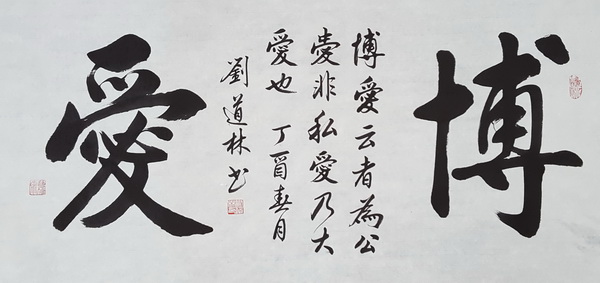 博
博愛云者為公
愛非私愛乃大
愛也 丁酉春月
劉道林书
愛